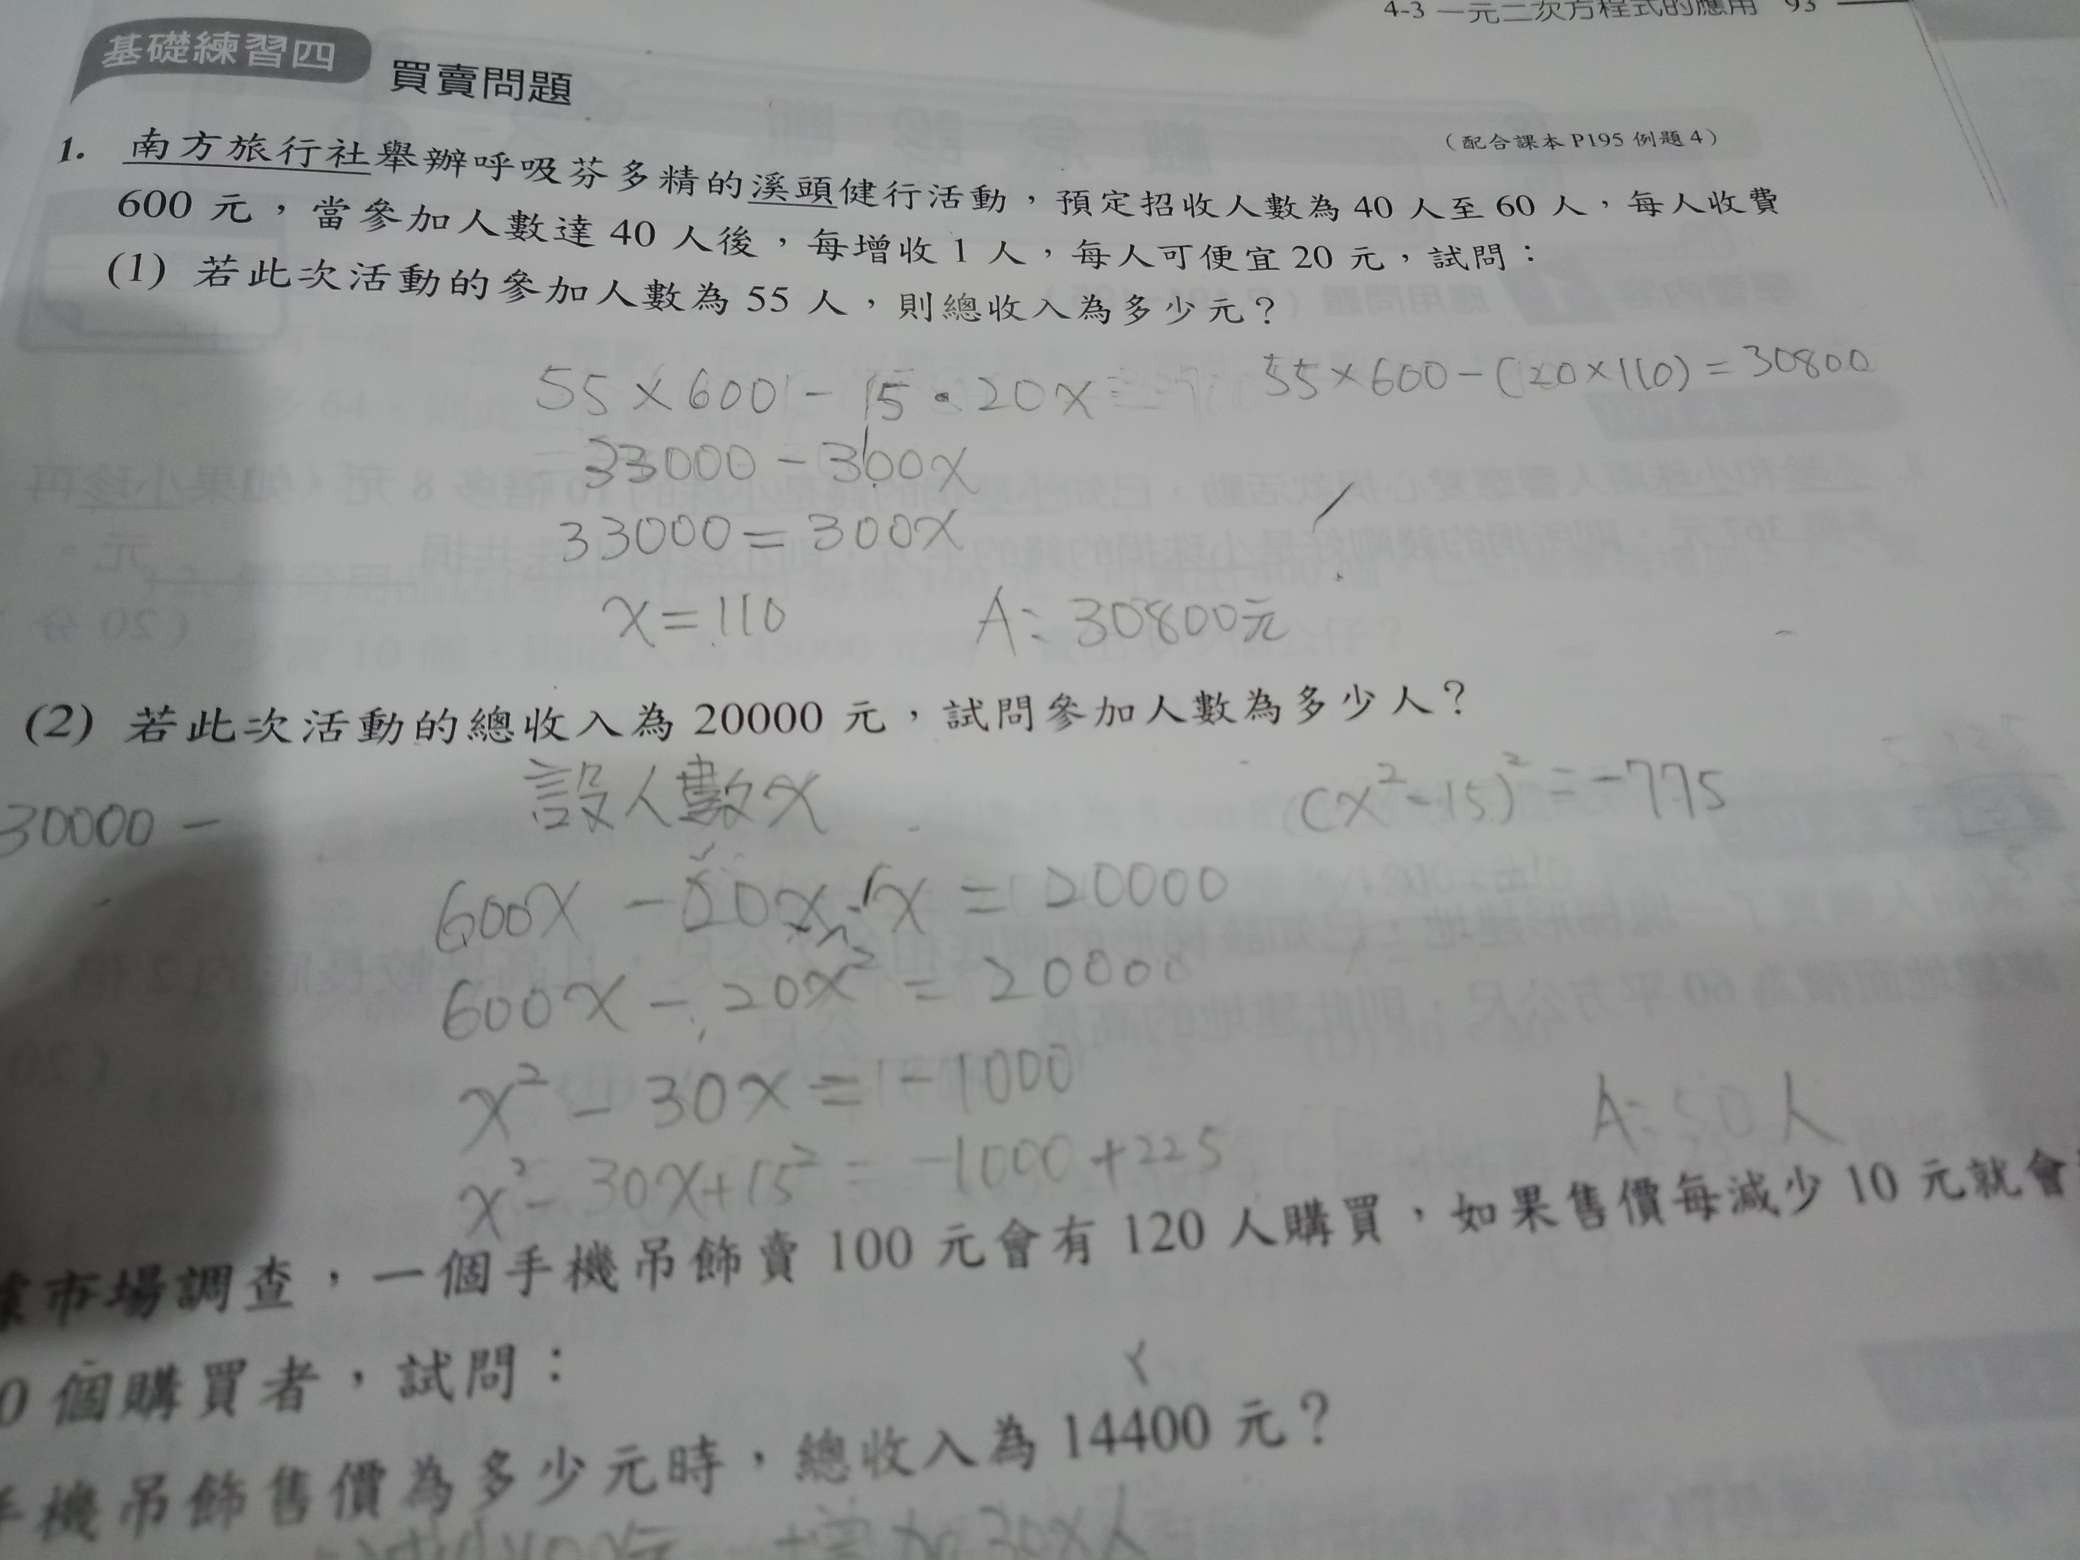 4-3 一元二次方程式的應用 93
基礎練習四 買賣問題
(配合課本 P195 例題 4)
1. 南方旅行社舉辦呼吸芬多精的溪頭健行活動，預定招收人數為 40 人至 60 人，每人收費
600 元，當參加人數達 40 人後，每增收 1 人，每人可便宜 20 元，試問：
(1) 若此次活動的參加人數為 55 人，則總收入為多少元？
55×600 - 15·20x
55×600-(20×110)=30800
33000-300x
33000=300x
x=110
A：30800元
(2) 若此次活動的總收入為 20000 元，試問參加人數為多少人？
30000 -
設人數x
(x²-15)²=-775
600x - 20x·x = 20000
600x - 20x² = 20000
x² - 30x = -1000
x² - 30x+15² = -1000+225
A：50人
市場調查，一個手機吊飾賣 100 元會有 120 人購買，如果售價每減少 10 元就會
0 個購買者，試問：
手機吊飾售價為多少元時，總收入為 14400 元？